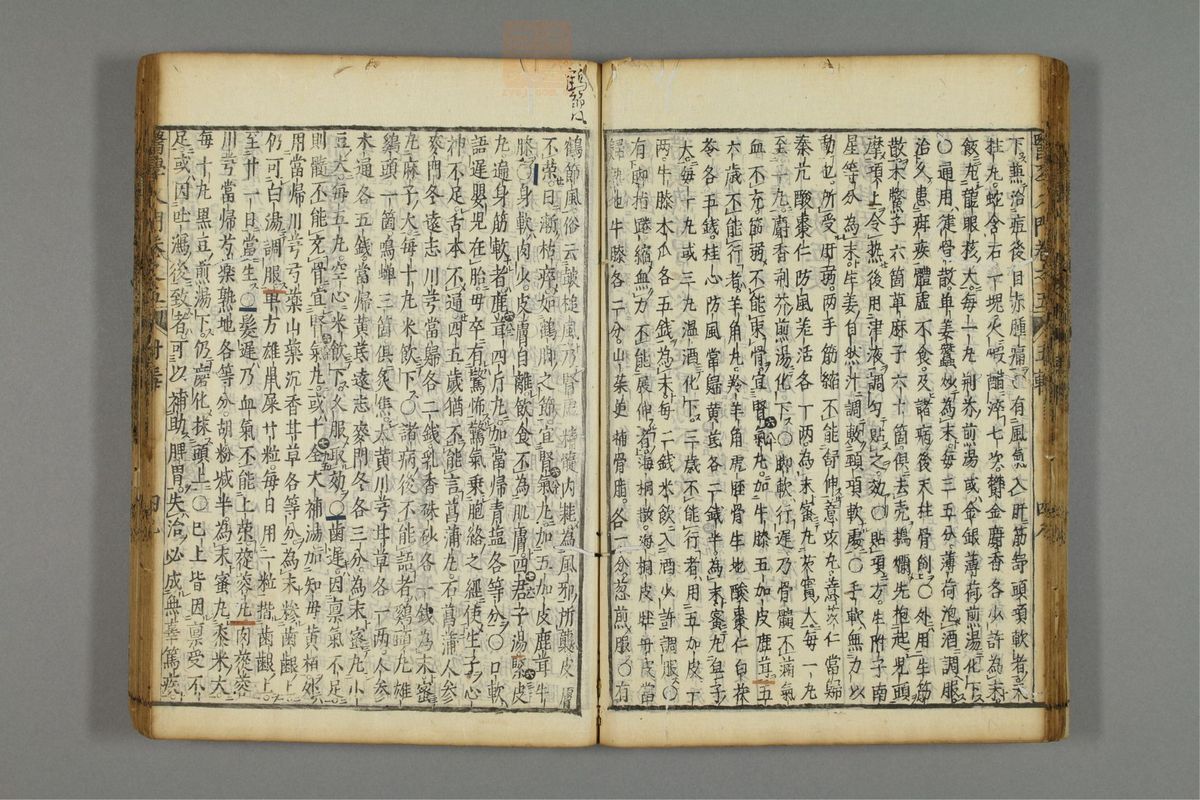 下熱治痘後目赤腫痛○亦有風氣入肝筋舒頭項軟者天
柱丸蛇含石一塊火煅醋淬七次鬱金麝香各少許為末
飯丸龍眼核大每一丸荆芥煎湯或金銀薄荷煎湯化下
○通用健骨散單姜蠶炒為末每三五分薄荷泡酒調服
治久患疳疾體虛不食及諸病後天柱骨倒○外用生筋
散木鱉子六箇草麻子六十箇俱去壳搗爛先抱起兒頭
摩項上令熱後用津液調勻貼之效○貼項方生附子南
星等分為末生姜自然汁調敷頸項軟處○手軟無力以
動也所受肝弱兩手筋縮不能舒伸意苡丸薏苡仁當歸
秦艽酸棗仁防風羌活各一兩為末蜜丸芡實大每一丸
至二丸麝香荆芥煎湯化下○脚軟行遲乃骨髓不滿氣
血不充筋弱不能束骨宜腎氣丸加牛膝五加皮鹿茸五
六歲不能行者羊角丸羚羊角虎脛骨生地酸棗仁白茯
苓各五錢桂心防風當歸黃芪各二錢半為末蜜丸皂子
大每十丸或三丸溫酒化下三歲不能行者用五加皮一
兩牛膝木瓜各五錢為末每二錢米飲入酒少許調服○
有脚指踡縮無力不能展伸者海桐散海桐皮牡丹皮當
歸熟地牛膝各二分山茱萸補骨脂各一分葱煎服○有
鶴節風俗云皷槌風乃腎虛精髓內耗為風邪所襲皮膚
不榮日漸枯瘁如鶴脚之節宜腎氣丸加五加皮鹿茸牛
膝○身軟肉少皮膚自離飲食不為肌膚四君子湯緊皮
丸遍身筋軟者鹿茸四斤丸加當歸青塩各等分○口軟
語遲嬰兒在胎母卒有驚怖驚氣乘胞絡之經使生子心
神不足舌本不通四五歲猶不能言菖蒲丸石菖蒲人參
麥門冬遠志川芎當歸各二錢乳香硃砂各一錢為末蜜
丸麻子大每十丸米飲下○諸病後不能語者鷄頭丸雄
鷄頭一箇鳴蟬三箇俱炙焦大黃川芎甘草各一兩人參
木通各五錢當歸黃芪遠志麥門冬各三分為末蜜丸小
豆大每五丸空心米飲下久服取効○齒遲因禀氣不足
則髓不能充骨宜腎氣丸或十全大補湯加知母黃栢外
用當歸川芎芍藥山藥沉香甘草各等分為末糝齒齦上
仍可白湯調服單方雄鼠屎廿粒每日用一粒揩齒齦上
至廿一日當生○髮遲乃血氣不能上榮蓯蓉丸肉蓯蓉
川芎當帰芍藥熟地各等分胡粉減半為末蜜丸黍米大
每十丸黑豆煎湯下仍磨化抹頭上○已上皆因禀受不
足或因吐瀉後致者可以補助脾胃失治必成無辜篤疾